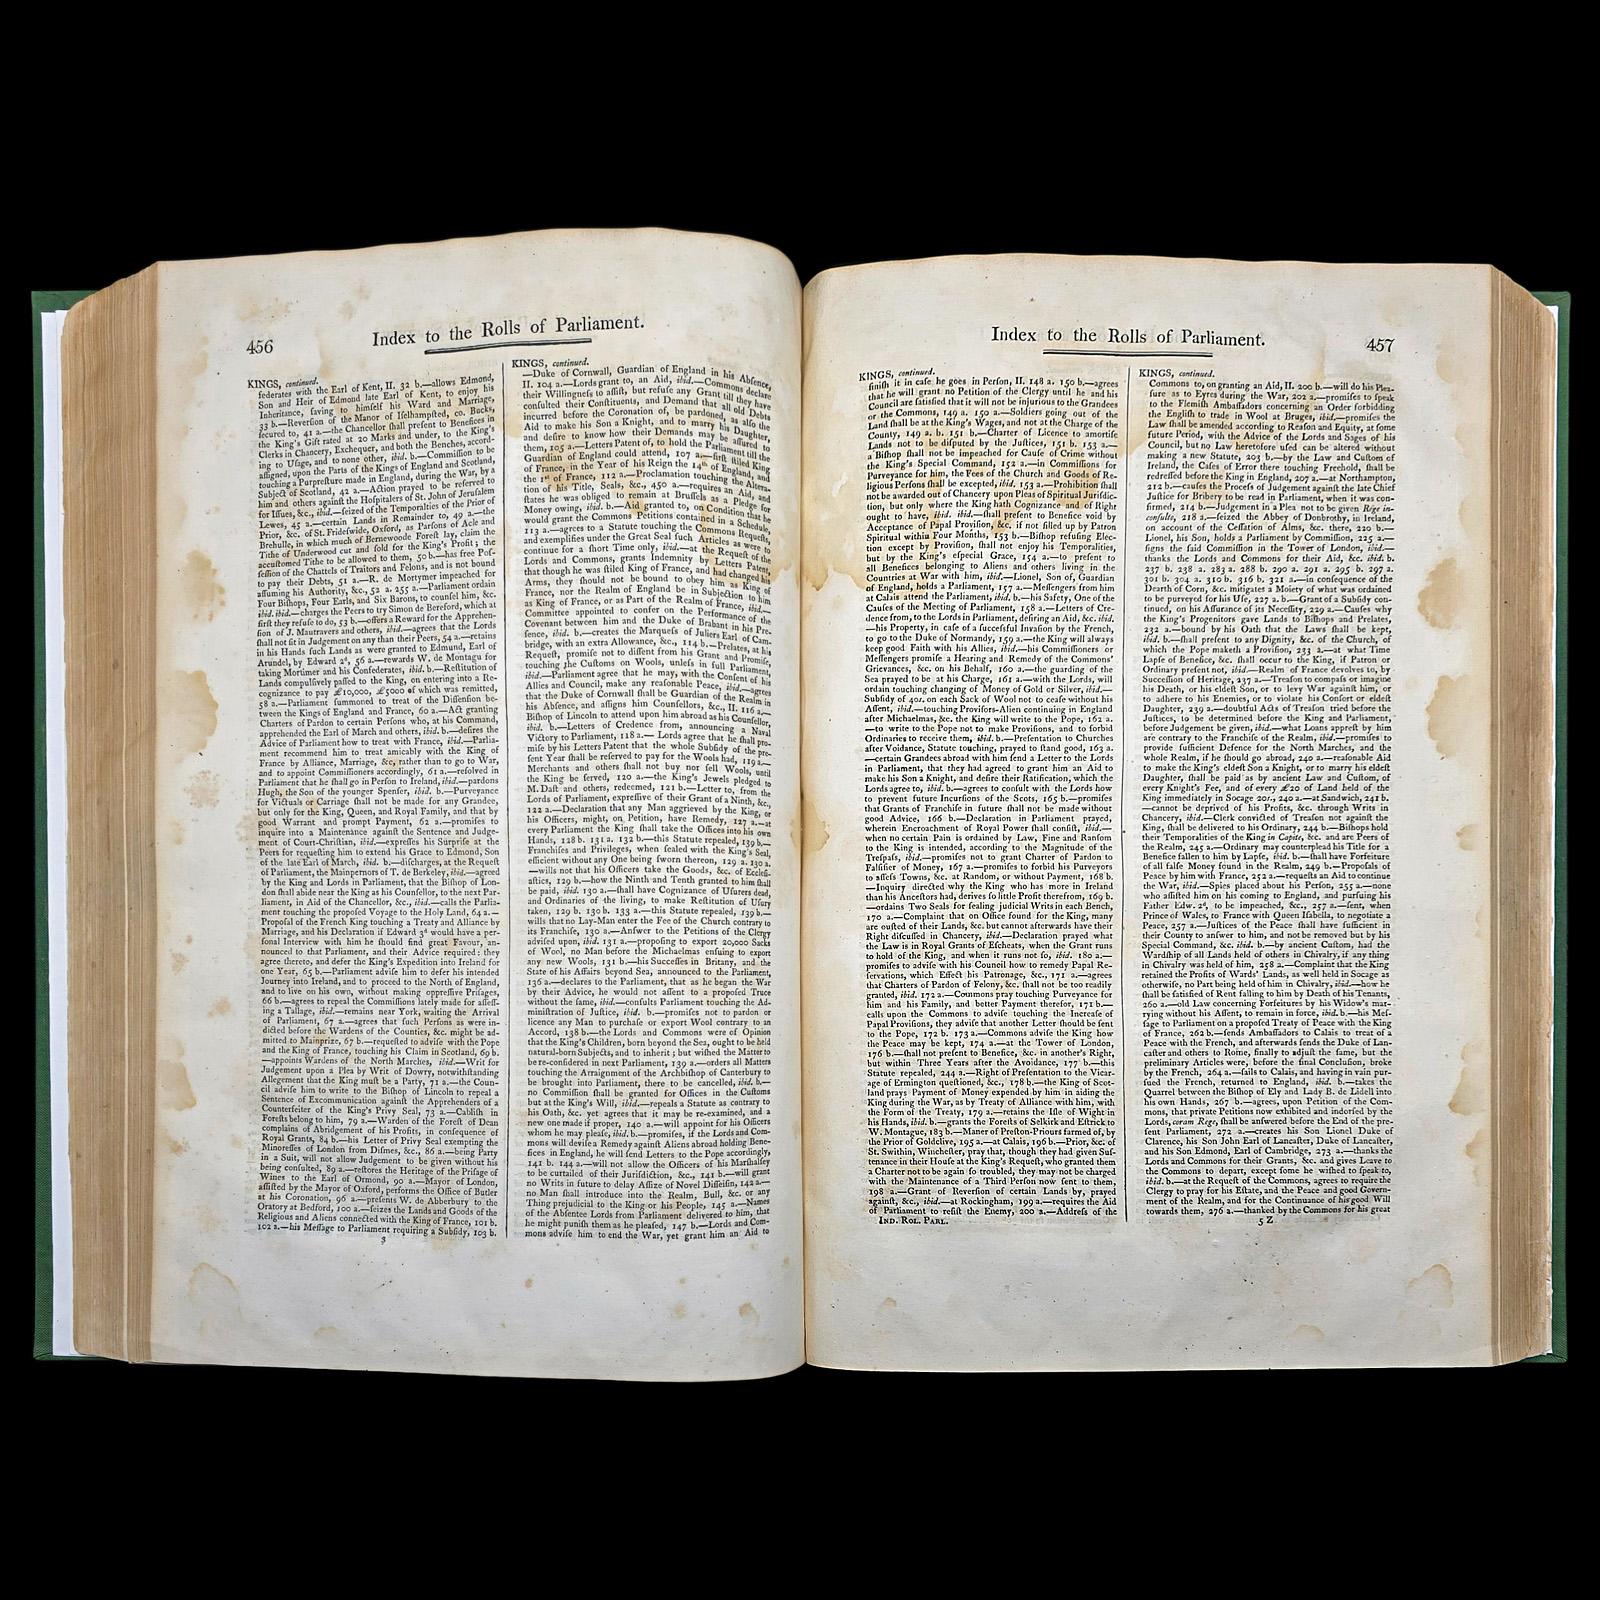 456
Index to the Rolls of Parliament.
KINGS, continued.
federates with the Earl of Kent, II. 32 b.—allows Edmond,
Son and Heir of Edmond late Earl of Kent, to enjoy his
Inheritance, ſaving to himſelf his Ward and Marriage,
33 b.—Reverſion of the Manor of Iſelhampſted, co. Bucks,
ſecured to, 41 a.—the Chancellor ſhall preſent to Benefices in
the King's Gift rated at 20 Marks and under, to the King's
Clerks in Chancery, Exchequer, and both the Benches, accord-
ing to Uſage, and to none other, ibid. b.—Commiſſion to be
aſſigned, upon the Parts of the Kings of England and Scotland,
touching a Purpreſture made in England, during the War, by a
Subject of Scotland, 42 a.—Action prayed to be referred to
him and others againſt the Hoſpitalers of St. John of Jeruſalem
for Iſſues, &c., ibid.—ſeized of the Temporalties of the Prior of
Lewes, 45 a.—certain Lands in Remainder to, 49 a.—the
Prior, &c. of St. Fridefwide, Oxford, as Parſons of Acle and
Brehulle, in which much of Bernewoode Foreſt lay, claim the
Tithe of Underwood cut and ſold for the King's Profit; the
accuſtomed Tithe to be allowed to them, 50 b.—has free Poſ-
ſeſſion of the Chattels of Traitors and Felons, and is not bound
to pay their Debts, 51 a.—R. de Mortymer impeached for
aſſuming his Authority, &c., 52 a. 255 a.—Parliament ordain
Four Biſhops, Four Earls, and Six Barons, to counſel him, &c.
ibid. ibid.—charges the Peers to try Simon de Bereford, which at
firſt they refuſe to do, 53 b.—offers a Reward for the Apprehen-
ſion of J. Mautravers and others, ibid.—agrees that the Lords
ſhall not ſit in Judgement on any than their Peers, 54 a.—retains
in his Hands ſuch Lands as were granted to Edmund, Earl of
Arundel, by Edward 2d, 56 a.—rewards W. de Montagu for
taking Mortimer and his Confederates, ibid. b.—Reſtitution of
Lands compulſively paſſed to the King, on entering into a Re-
cognizance to pay £10,000, £5000 of which was remitted,
58 a.—Parliament ſummoned to treat of the Diſſenſion be-
tween the Kings of England and France, 60 a.—Act granting
Charters of Pardon to certain Perſons who, at his Command,
apprehended the Earl of March and others, ibid.—deſires the
Advice of Parliament how to treat with France, ibid.—Parlia-
ment recommend him to treat amicably with the King of
France by Alliance, Marriage, &c, rather than to go to War,
and to appoint Commiſſioners accordingly, 61 a.—reſolved in
Parliament that he ſhall go in Perſon to Ireland, ibid.—pardons
Hugh, the Son of the younger Spenſer, ibid. b.—Purveyance
for Victuals or Carriage ſhall not be made for any Grandee,
but only for the King, Queen, and Royal Family, and that by
good Warrant and prompt Payment, 62 a.—promiſes to
inquire into a Maintenance againſt the Sentence and Judge-
ment of Court-Chriſtian, ibid.—expreſſes his Surpriſe at the
Peers for requeſting him to extend his Grace to Edmond, Son
of the late Earl of March, ibid. b.—diſcharges, at the Requeſt
of Parliament, the Mainpernors of T. de Berkeley, ibid.—agreed
by the King and Lords in Parliament, that the Biſhop of Lon-
don ſhall abide near the King as his Counſellor, to the next Par-
liament, in Aid of the Chancellor, &c., ibid.—calls the Parlia-
ment touching the propoſed Voyage to the Holy Land, 64 a.—
Propoſal of the French King touching a Treaty and Alliance by
Marriage, and his Declaration if Edward 3d would have a per-
ſonal Interview with him he ſhould find great Favour, an-
nounced to that Parliament, and their Advice required: they
agree thereto, and defer the King's Expedition into Ireland for
one Year, 65 b.—Parliament adviſe him to defer his intended
Journey into Ireland, and to proceed to the North of England,
and to live on his own, without making oppreſſive Priſages,
66 b.—agrees to repeal the Commiſſions lately made for aſſeſſ-
ing a Tallage, ibid.—remains near York, waiting the Arrival
of Parliament, 67 a.—agrees that ſuch Perſons as were in-
dicted before the Wardens of the Counties, &c. might be ad-
mitted to Mainprize, 67 b.—requeſted to adviſe with the Pope
and the King of France, touching his Claim in Scotland, 69 b.
—appoints Wardens of the North Marches, ibid.—Writ for
Judgement upon a Plea by Writ of Dowry, notwithſtanding
Allegement that the King muſt be a Party, 71 a.—the Coun-
cil adviſe him to write to the Biſhop of Lincoln to repeal a
Sentence of Excommunication againſt the Apprehenders of a
Counterfeiter of the King's Privy Seal, 73 a.—Cabliſh in
Foreſts belong to him, 79 a.—Warden of the Foreſt of Dean
complains of Abridgement of his Profits, in conſequence of
Royal Grants, 84 b.—his Letter of Privy Seal exempting the
Minoreſſes of London from Diſmes, &c., 86 a.—being Party
in a Suit, will not allow Judgement to be given without his
being conſulted, 89 a.—reſtores the Heritage of the Priſage of
Wines to the Earl of Ormond, 90 a.—Mayor of London,
aſſiſted by the Mayor of Oxford, performs the Office of Butler
at his Coronation, 96 a.—preſents W. de Abberbury to the
Oratory at Bedford, 100 a.—ſeizes the Lands and Goods of the
Religious and Aliens connected with the King of France, 101 b.
102 a.—his Meſſage to Parliament requiring a Subſidy, 103 b.
3
KINGS, continued.
—Duke of Cornwall, Guardian of England in his Abſence,
II. 104 a.—Lords grant to, an Aid, ibid.—Commons declare
their Willingneſs to aſſiſt, but refuſe any Grant till they have
conſulted their Conſtituents, and Demand that all old Debts
incurred before the Coronation of, be pardoned, as alſo the
Aid to make his Son a Knight, and to marry his Daughter,
and deſire to know how their Demands may be aſſured to
them, 105 a.—Letters Patent of, to hold the Parliament till the
Guardian of England could attend, 107 a.—firſt ſtiled King
of France, in the Year of his Reign the 14th of England, and
the 1st of France, 112 a.—Proclamation touching the Altera-
tion of his Title, Seals, &c., 450 a.—requires an Aid, and
ſtates he was obliged to remain at Bruſſels as a Pledge for
Money owing, ibid. b.—Aid granted to, on Condition that he
would grant the Commons Petitions contained in a Schedule,
113 a.—agrees to a Statute touching the Commons Requeſts,
and exemplifies under the Great Seal ſuch Articles as were to
continue for a ſhort Time only, ibid.—at the Requeſt of the
Lords and Commons, grants Indemnity by Letters Patent,
that though he was ſtiled King of France, and had changed his
Arms, they ſhould not be bound to obey him as King of
France, nor the Realm of England be in Subjection to him
as King of France, or as Part of the Realm of France, ibid.—
Committee appointed to confer on the Performance of the
Covenant between him and the Duke of Brabant in his Pre-
ſence, ibid. b.—creates the Marqueſs of Juliers Earl of Cam-
bridge, with an extra Allowance, &c., 114 b.—Prelates, at his
Requeſt, promiſe not to diſſent from his Grant and Promiſe,
touching the Cuſtoms on Wools, unleſs in full Parliament,
ibid.—Parliament agree that he may, with the Conſent of his
Allies and Council, make any reaſonable Peace, ibid.—agrees
that the Duke of Cornwall ſhall be Guardian of the Realm in
his Abſence, and aſſigns him Counſellors, &c., II. 116 a.—
Biſhop of Lincoln to attend upon him abroad as his Counſellor,
ibid. b.—Letters of Credence from, announcing a Naval
Victory to Parliament, 118 a.—Lords agree that he ſhall pro-
miſe by his Letters Patent that the whole Subſidy of the pre-
ſent Year ſhall be referred to pay for the Wools had, 119 a.—
Merchants and others ſhall not buy nor ſell Wools, until
the King be ſerved, 120 a.—the King's Jewels pledged to
M. Daſt and others, redeemed, 121 b.—Letter to, from the
Lords of Parliament, expreſſive of their Grant of a Ninth, &c.,
122 a.—Declaration that any Man aggrieved by the King, or
his Officers, might, on Petition, have Remedy, 127 a.—at
every Parliament the King ſhall take the Offices into his own
Hands, 128 b. 131 a. 132 b.—this Statute repealed, 139 b.—
Franchiſes and Privileges, when ſealed with the King's Seal,
efficient without any One being ſworn thereon, 129 a. 130 a.
—wills not that his Officers take the Goods, &c. of Eccleſi-
aſtics, 129 b.—how the Ninth and Tenth granted to him ſhall
be paid, ibid. 130 a.—ſhall have Cognizance of Uſurers dead,
and Ordinaries of the living, to make Reſtitution of Uſury
taken, 129 b. 130 b. 133 a.—this Statute repealed, 139 b.—
wills that no Lay-Man enter the Fee of the Church contrary to
its Franchiſe, 130 a.—Anſwer to the Petitions of the Clergy
adviſed upon, ibid. 131 a.—propoſing to export 20,000 Sacks
of Wool, no Man before the Michaelmas enſuing to export
any new Wools, 131 b.—his Succeſſes in Britany, and the
State of his Affairs beyond Sea, announced to the Parliament,
136 a.—declares to the Parliament, that as he began the War
by their Advice, he would not aſſent to a propoſed Truce
without the ſame, ibid.—conſults Parliament touching the Ad-
miniſtration of Juſtice, ibid. b.—promiſes not to pardon or
licence any Man to purchaſe or export Wool contrary to an
Accord, 138 b.—the Lords and Commons were of Opinion
that the King's Children, born beyond the Sea, ought to be held
natural-born Subjects, and to inherit; but wiſhed the Matter to
be conſidered in next Parliament, 139 a.—orders all Matters
touching the Arraignment of the Archbiſhop of Canterbury to
be brought into Parliament, there to be cancelled, ibid. b.—
no Commiſſion ſhall be granted for Offices in the Cuſtoms
but at the King's Will, ibid.—repeals a Statute as contrary to
his Oath, &c. yet agrees that it may be re-examined, and a
new one made if proper, 140 a.—will appoint for his Officers
whom he may pleaſe, ibid. b.—promiſes, if the Lords and Com-
mons will deviſe a Remedy againſt Aliens abroad holding Bene-
fices in England, he will ſend Letters to the Pope accordingly,
141 b. 144 a.—will not allow the Officers of his Marſhalſey
to be curtailed of their Juriſdiction, &c., 141 b.—will grant
no Writs in future to delay Aſſize of Novel Diſſeiſin, 142 a.—
no Man ſhall introduce into the Realm, Bull, &c. or any
Thing prejudicial to the King or his People, 145 a.—Names
of the Abſentee Lords from Parliament delivered to him, that
he might puniſh them as he pleaſed, 147 b.—Lords and Com-
mons adviſe him to end the War, yet grant him an Aid to
Index to the Rolls of Parliament.
457
KINGS, continued.
finiſh it in caſe he goes in Perſon, II. 148 a. 150 b.—agrees
that he will grant no Petition of the Clergy until he and his
Council are ſatisfied that it will not be injurious to the Grandees
or the Commons, 149 a. 150 a.—Soldiers going out of the
Land ſhall be at the King's Wages, and not at the Charge of the
County, 149 a. b. 151 b.—Charter of Licence to amortiſe
Lands not to be diſputed by the Juſtices, 151 b. 153 a.—
a Biſhop ſhall not be impeached for Cauſe of Crime without
the King's Special Command, 152 a.—in Commiſſions for
Purveyance for him, the Fees of the Church and Goods of Re-
ligious Perſons ſhall be excepted, ibid. 153 a.—Prohibition ſhall
not be awarded out of Chancery upon Pleas of Spiritual Juriſdic-
tion, but only where the King hath Cognizance and of Right
ought to have, ibid. ibid.—ſhall preſent to Benefice void by
Acceptance of Papal Proviſion, &c. if not filled up by Patron
Spiritual within Four Months, 153 b.—Biſhop refuſing Elec-
tion except by Proviſion, ſhall not enjoy his Temporalities,
but by the King's eſpecial Grace, 154 a.—to preſent to
all Benefices belonging to Aliens and others living in the
Countries at War with him, ibid.—Lionel, Son of, Guardian
of England, holds a Parliament, 157 a.—Meſſengers from him
at Calais attend the Parliament, ibid. b.—his Safety, One of the
Cauſes of the Meeting of Parliament, 158 a.—Letters of Cre-
dence from, to the Lords in Parliament, deſiring an Aid, &c. ibid.
—his Property, in caſe of a ſucceſsful Invaſion by the French,
to go to the Duke of Normandy, 159 a.—the King will always
keep good Faith with his Allies, ibid.—his Commiſſioners or
Meſſengers promiſe a Hearing and Remedy of the Commons'
Grievances, &c. on his Behalf, 160 a.—the guarding of the
Sea prayed to be at his Charge, 161 a.—with the Lords, will
ordain touching changing of Money of Gold or Silver, ibid.—
Subſidy of 40s. on each Sack of Wool not to ceaſe without his
Aſſent, ibid.—touching Proviſors-Alien continuing in England
after Michaelmas, &c. the King will write to the Pope, 162 a.
—to write to the Pope not to make Proviſions, and to forbid
Ordinaries to receive them, ibid. b.—Preſentation to Churches
after Voidance, Statute touching, prayed to ſtand good, 163 a.
—certain Grandees abroad with him ſend a Letter to the Lords
in Parliament, that they had agreed to grant him an Aid to
make his Son a Knight, and deſire their Ratification, which the
Lords agree to, ibid. b.—agrees to conſult with the Lords how
to prevent future Incurſions of the Scots, 165 b.—promiſes
that Grants of Franchiſe in future ſhall not be made without
good Advice, 166 b.—Declaration in Parliament prayed,
wherein Encroachment of Royal Power ſhall conſiſt, ibid.—
when no certain Pain is ordained by Law, Fine and Ranſom
to the King is intended, according to the Magnitude of the
Treſpaſs, ibid.—promiſes not to grant Charter of Pardon to
Falſifier of Money, 167 a.—promiſes to forbid his Purveyors
to aſſeſs Towns, &c. at Random, or without Payment, 168 b.
—Inquiry directed why the King who has more in Ireland
than his Anceſtors had, derives ſo little Profit therefrom, 169 b.
—ordains Two Seals for ſealing judicial Writs in each Bench,
170 a.—Complaint that on Office found for the King, many
are ouſted of their Lands, &c. but cannot afterwards have their
Right diſcuſſed in Chancery, ibid.—Declaration prayed what
the Law is in Royal Grants of Eſcheats, when the Grant runs
to hold of the King, and when it runs not ſo, ibid. 180 a.—
promiſes to adviſe with his Council how to remedy Papal Re-
ſervations, which Effect his Patronage, &c., 171 a.—agrees
that Charters of Pardon of Felony, &c. ſhall not be too readily
granted, ibid. 172 a.—Commons pray touching Purveyance for
him and his Family, and better Payment therefor, 171 b.—
calls upon the Commons to adviſe touching the Increaſe of
Papal Proviſions, they adviſe that another Letter ſhould be ſent
to the Pope, 172 b. 173 a.—Commons adviſe the King how
the Peace may be kept, 174 a.—at the Tower of London,
176 b.—ſhall not preſent to Benefice, &c. in another's Right,
but within Three Years after the Avoidance, 177 b.—this
Statute repealed, 244 a.—Right of Preſentation to the Vicar-
age of Ermington queſtioned, &c., 178 b.—the King of Scot-
land prays Payment of Money expended by him in aiding the
King during the War, as by Treaty of Alliance with him, with
the Form of the Treaty, 179 a.—retains the Iſle of Wight in
his Hands, ibid. b.—grants the Foreſts of Selkirk and Eſtrick to
W. Montague, 183 b.—Maner of Preſton-Priours farmed of, by
the Prior of Goldclive, 195 a.—at Calais, 196 b.—Prior, &c. of
St. Swithin, Wincheſter, pray that, though they had given Suſ-
tenance in their Houſe at the King's Requeſt, who granted them
a Charter not to be again ſo troubled, they may not be charged
with the Maintenance of a Third Perſon now ſent to them,
198 a.—Grant of Reverſion of certain Lands by, prayed
againſt, &c., ibid.—at Rockingham, 199 a.—requires the Aid
of Parliament to reſiſt the Enemy, 200 a.—Addreſs of the
IND. ROL. PARL.
KINGS, continued.
Commons to, on granting an Aid, II. 200 b.—will do his Plea-
ſure as to Eyres during the War, 202 a.—promiſes to ſpeak
to the Flemiſh Ambaſſadors concerning an Order forbidding
the Engliſh to trade in Wool at Bruges, ibid.—promiſes the
Law ſhall be amended according to Reaſon and Equity, at ſome
future Period, with the Advice of the Lords and Sages of his
Council, but no Law heretofore uſed can be altered without
making a new Statute, 203 b.—by the Law and Cuſtom of
Ireland, the Caſes of Error there touching Freehold, ſhall be
redreſſed before the King in England, 207 a.—at Northampton,
212 b.—cauſes the Proceſs of Judgement againſt the late Chief
Juſtice for Bribery to be read in Parliament, when it was con-
firmed, 214 b.—Judgement in a Plea not to be given Rege in-
conſulto, 218 a.—ſeized the Abbey of Donbrothy, in Ireland,
on account of the Ceſſation of Alms, &c. there, 220 b.—
Lionel, his Son, holds a Parliament by Commiſſion, 225 a.—
ſigns the ſaid Commiſſion in the Tower of London, ibid.—
thanks the Lords and Commons for their Aid, &c. ibid. b.
237 b. 238 a. 283 a. 288 b. 290 a. 291 a. 295 b. 297 a.
301 b. 304 a. 310 b. 316 b. 321 a.—in conſequence of the
Dearth of Corn, &c. mitigates a Moiety of what was ordained
to be purveyed for his Uſe, 227 a. b.—Grant of a Subſidy con-
tinued, on his Aſſurance of its Neceſſity, 229 a.—Cauſes why
the King's Progenitors gave Lands to Biſhops and Prelates,
232 a.—bound by his Oath that the Laws ſhall be kept,
ibid. b.—ſhall preſent to any Dignity, &c. of the Church, of
which the Pope maketh a Proviſion, 233 a.—at what Time
Lapſe of Benefice, &c. ſhall occur to the King, if Patron or
Ordinary preſent not, ibid.—Realm of France devolves to, by
Succeſſion of Heritage, 237 a.—Treaſon to compaſs or imagine
his Death, or his eldeſt Son, or to levy War againſt him, or
to adhere to his Enemies, or to violate his Conſort or eldeſt
Daughter, 239 a.—doubtful Acts of Treaſon tried before the
Juſtices, to be determined before the King and Parliament,
before Judgement be given, ibid.—what Loans appreſt by him
are contrary to the Franchiſe of the Realm, ibid.—promiſes to
provide ſufficient Defence for the North Marches, and the
whole Realm, if he ſhould go abroad, 240 a.—reaſonable Aid
to make the King's eldeſt Son a Knight, or to marry his eldeſt
Daughter, ſhall be paid as by ancient Law and Cuſtom, of
every Knight's Fee, and of every £20 of Land held of the
King immediately in Socage 20s., 240 a.—at Sandwich, 241 b.
—cannot be deprived of his Profits, &c. through Writs in
Chancery, ibid.—Clerk convicted of Treaſon not againſt the
King, ſhall be delivered to his Ordinary, 244 b.—Biſhops hold
their Temporalities of the King in Capite, &c. and are Peers of
the Realm, 245 a.—Ordinary may counterplead his Title for a
Benefice fallen to him by Lapſe, ibid. b.—ſhall have Forfeiture
of all falſe Money found in the Realm, 249 b.—Propoſals of
Peace by him with France, 252 a.—requeſts an Aid to continue
the War, ibid.—Spies placed about his Perſon, 255 a.—none
who aſſiſted him on his coming to England, and purſuing his
Father Edw. 2d, to be impeached, &c., 257 a.—ſent, when
Prince of Wales, to France with Queen Iſabella, to negotiate a
Peace, 257 a.—Juſtices of the Peace ſhall have ſufficient in
their County to anſwer to him, and not be removed but by his
Special Command, &c. ibid. b.—by ancient Cuſtom, had the
Wardſhip of all Lands held of others in Chivalry, if any thing
in Chivalry was held of him, 258 a.—Complaint that the King
retained the Profits of Wards' Lands, as well held in Socage as
otherwiſe, no Part being held of him in Chivalry, ibid.—how he
ſhall be ſatisfied of Rent falling to him by Death of his Tenants,
260 a.—old Law concerning Forfeitures by his Widow's mar-
rying without his Aſſent, to remain in force, ibid. b.—his Meſ-
ſage to Parliament on a propoſed Treaty of Peace with the King
of France, 262 b.—ſends Ambaſſadors to Calais to treat of a
Peace with the French, and afterwards ſends the Duke of Lan-
caſter and others to Rome, finally to adjuſt the ſame, but the
preliminary Articles were, before the final Concluſion, broke
by the French, 264 a.—ſails to Calais, and having in vain pur-
ſued the French, returned to England, ibid. b.—takes the
Quarrel between the Biſhop of Ely and Lady B. de Lidell into
his own Hands, 267 b.—agrees, upon Petition of the Com-
mons, that private Petitions now exhibited and indorſed by the
Lords, coram Rege, ſhall be anſwered before the End of the pre-
ſent Parliament, 272 a.—creates his Son Lionel Duke of
Clarence, his Son John Earl of Lancaſter, Duke of Lancaſter,
and his Son Edmond, Earl of Cambridge, 273 a.—thanks the
Lords and Commons for their Grants, &c. and gives Leave to
the Commons to depart, except ſome he wiſhed to ſpeak to,
ibid. b.—at the Requeſt of the Commons, agrees to require the
Clergy to pray for his Eſtate, and the Peace and good Govern-
ment of the Realm, and for the Continuance of his good Will
towards them, 276 a.—thanked by the Commons for his great
5 Z